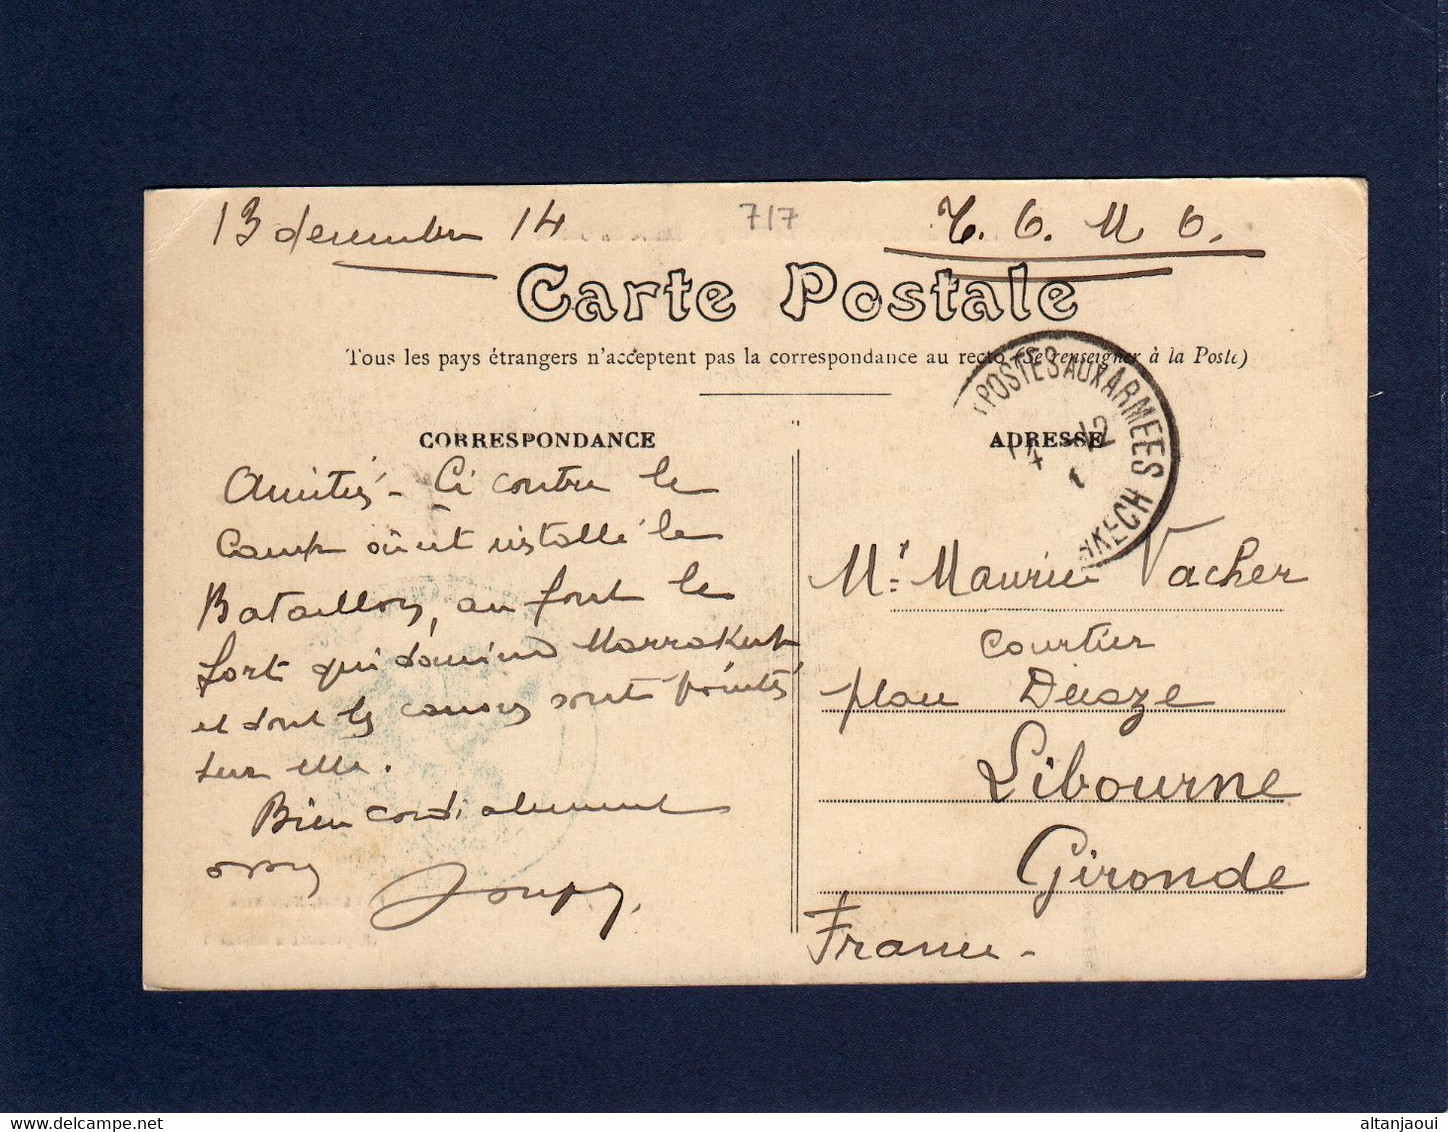 13 decembre 14
717
T. C. M. O.
Carte Postale
Tous les pays étrangers n'acceptent pas la correspondance au recto (Se renseigner à la Poste)
POSTES AUX ARMEES
14 -12
KECH
CORRESPONDANCE
Amitiés - Ci contre le
Camp où est installé le
Bataillon, au fond le
fort qui domine Marrakech
et dont les canons sont pointés
sur elle.
Bien cordialement
ADRESSE
Mr Maurice Vacher
Courtier
place Decaze
Libourne
Gironde
France -
altanjaoui